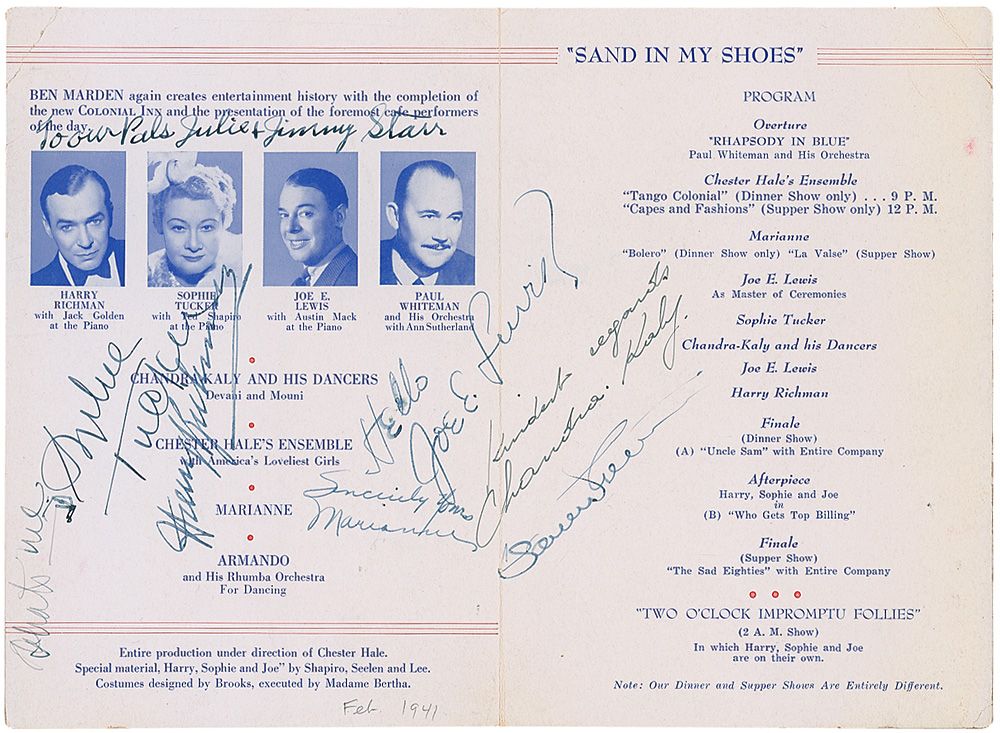 BEN MARDEN again creates entertainment history with the completion of
the new COLONIAL INN and the presentation of the foremost cafe performers
of the day.
To our Pals Julie + Jimmy Starr
HARRY
RICHMAN
with Jack Golden
at the Piano
SOPHIE
TUCKER
with Ted Shapiro
at the Piano
JOE E.
LEWIS
with Austin Mack
at the Piano
PAUL
WHITEMAN
and His Orchestra
with Ann Sutherland
CHANDRA-KALY AND HIS DANCERS
Devani and Mouni
CHESTER HALE'S ENSEMBLE
with America's Loveliest Girls
MARIANNE
ARMANDO
and His Rhumba Orchestra
For Dancing
Sophie
Tucker
Harry Richman
Hello
Joe E. Lewis
Sincerely Yours
Marianne
Kindest regards
Chandra Kaly.
Entire production under direction of Chester Hale.
Special material, Harry, Sophie and Joe" by Shapiro, Seelen and Lee.
Costumes designed by Brooks, executed by Madame Bertha.
Feb. 1941
"SAND IN MY SHOES"
PROGRAM
Overture
"RHAPSODY IN BLUE"
Paul Whiteman and His Orchestra
Chester Hale's Ensemble
"Tango Colonial" (Dinner Show only) . . . 9 P. M.
"Capes and Fashions" (Supper Show only) 12 P. M.
Marianne
"Bolero" (Dinner Show only) "La Valse" (Supper Show)
Joe E. Lewis
As Master of Ceremonies
Sophie Tucker
Chandra-Kaly and his Dancers
Joe E. Lewis
Harry Richman
Finale
(Dinner Show)
(A) "Uncle Sam" with Entire Company
Afterpiece
Harry, Sophie and Joe
in
(B) "Who Gets Top Billing"
Finale
(Supper Show)
"The Sad Eighties" with Entire Company
"TWO O'CLOCK IMPROMPTU FOLLIES"
(2 A. M. Show)
In which Harry, Sophie and Joe
are on their own.
Note: Our Dinner and Supper Shows Are Entirely Different.